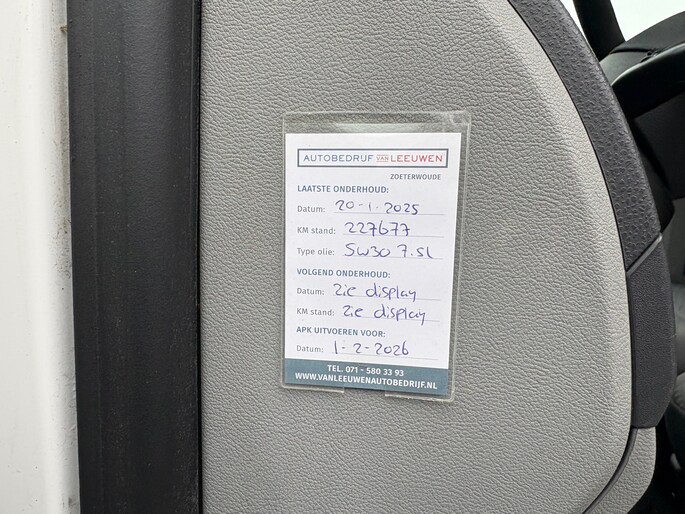 AUTOBEDRIJF VAN LEEUWEN
ZOETERWOUDE
LAATSTE ONDERHOUD:
Datum: 20-1-2025
KM stand: 227677
Type olie: 5W30 7.5L
VOLGEND ONDERHOUD:
Datum: Zie display
KM stand: Zie display
APK UITVOEREN VOOR:
Datum: 1-2-2026
TEL. 071 - 580 33 93
WWW.VANLEEUWENAUTOBEDRIJF.NL